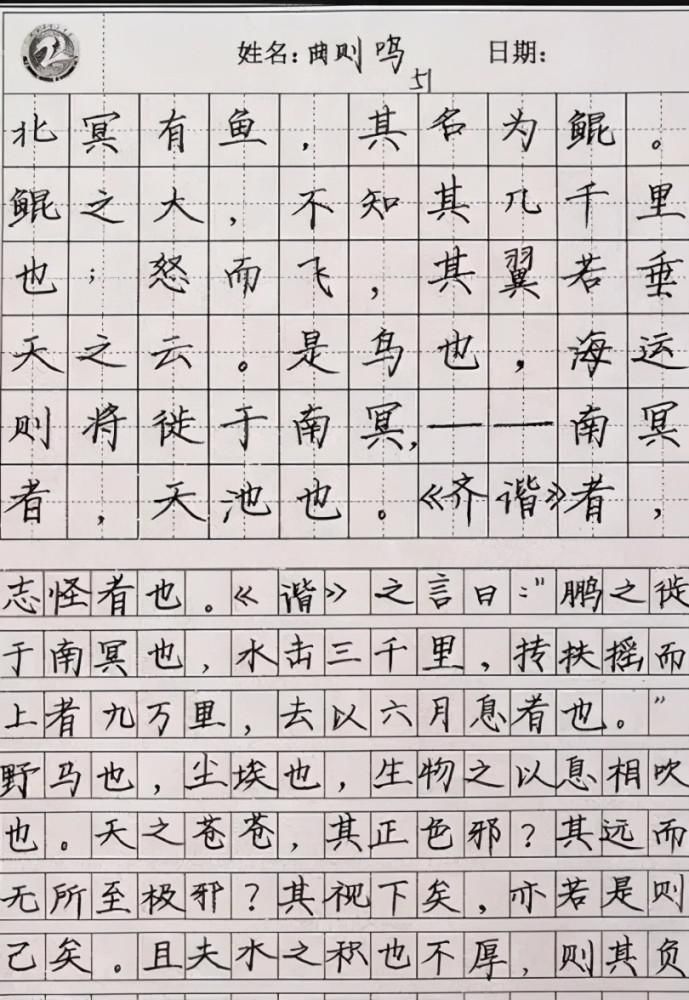 姓名：曲则鸣 日期：
51
北冥有鱼，其名为鲲。
鲲之大，不知其几千里
也；怒而飞，其翼若垂
天之云。是鸟也，海运
则将徙于南冥，——南冥
者，天池也。《齐谐》者，
志怪者也。《谐》之言曰：“鹏之徙
于南冥也，水击三千里，抟扶摇而
上者九万里，去以六月息者也。”
野马也，尘埃也，生物之以息相吹
也。天之苍苍，其正色邪？其远而
无所至极邪？其视下矣，亦若是则
己矣。且夫水之积也不厚，则其负